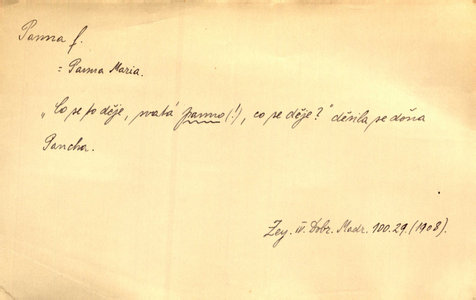 Panna f.
= Panna Maria.
„Co se to děje, svatá panno (!), co se děje?" děsila se doña
Pancha.
Zey. III. Dobr. Madr. 100.29 (1908).